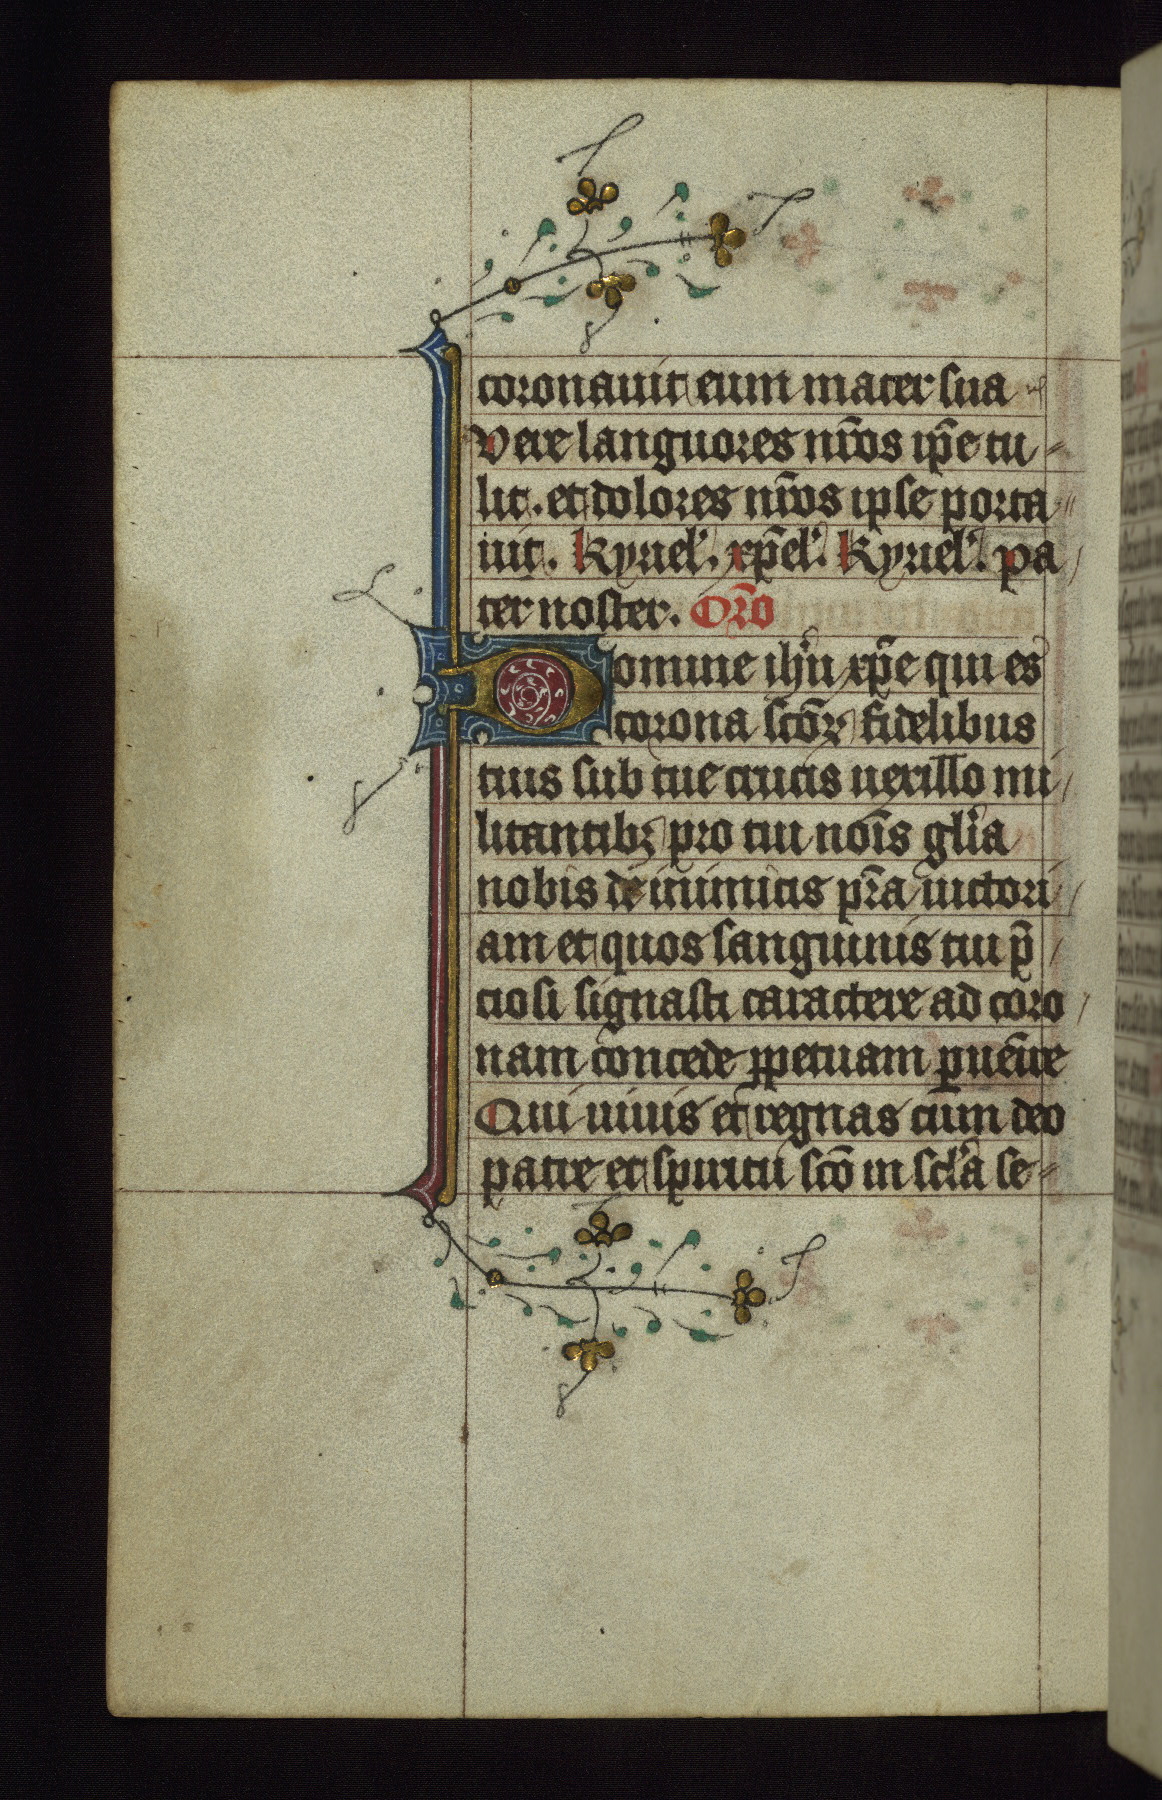 coronauit eum mater sua
Vere languores nr̄os ip̄e tu-
lit. et dolores nr̄os ipse porta
uit. Kyriel'. xp̄el'. Kyriel'. pa
ter noster. Or̄o
Domine ih'u xp̄e qui es
corona sc̄oꝝ fidelibus
tuis sub tue crucis uexillo mi
litantibꝫ pro tui no̅is gl'ia
nobis de inimicis pr̄a uictori
am et quos sanguinis tui p̄
ciosi signasti caractere ad coro
nam concede ꝑpetuam ꝑuēire
Qui uiuis et regnas cum deo
patre et spiritu sc̄o in scl'a se-